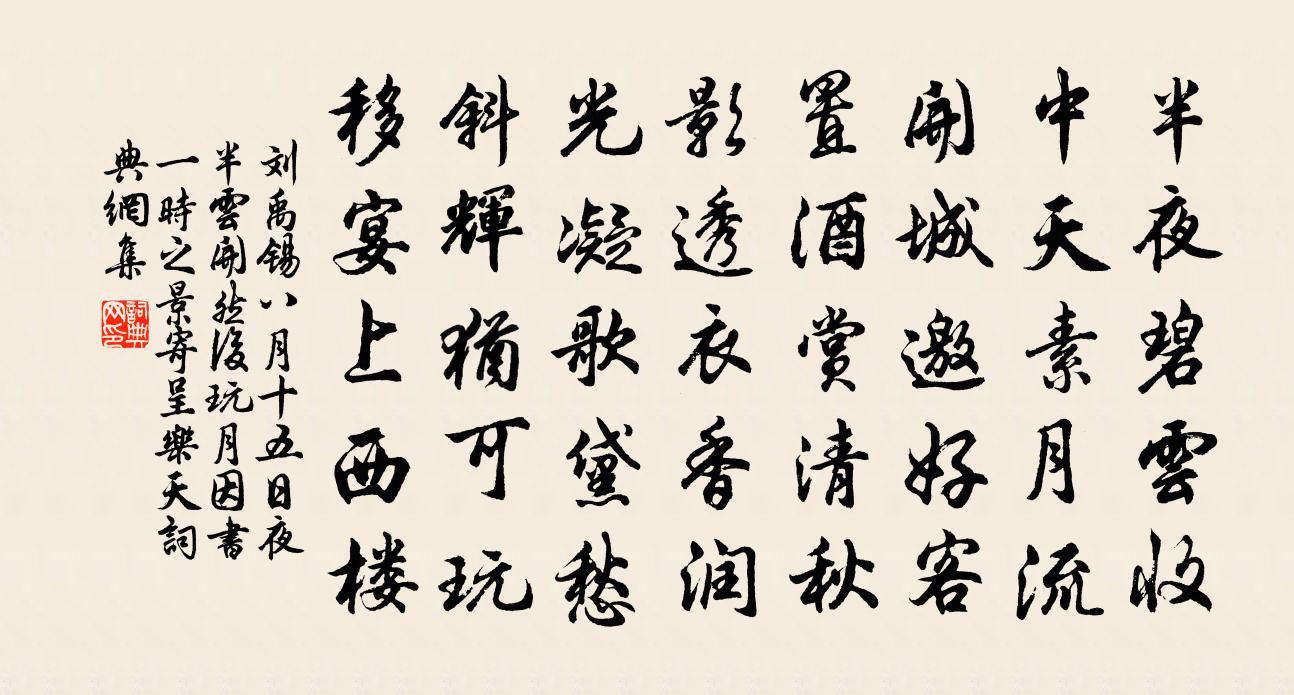 半夜碧雲收
中天素月流
開城邀好客
置酒賞清秋
影透衣香润
光凝歌黛愁
斜輝猶可玩
移宴上西楼
刘禹锡八月十五日夜
半雲開然後玩月因書
一時之景寄呈樂天詞
典網集
詞典
网印